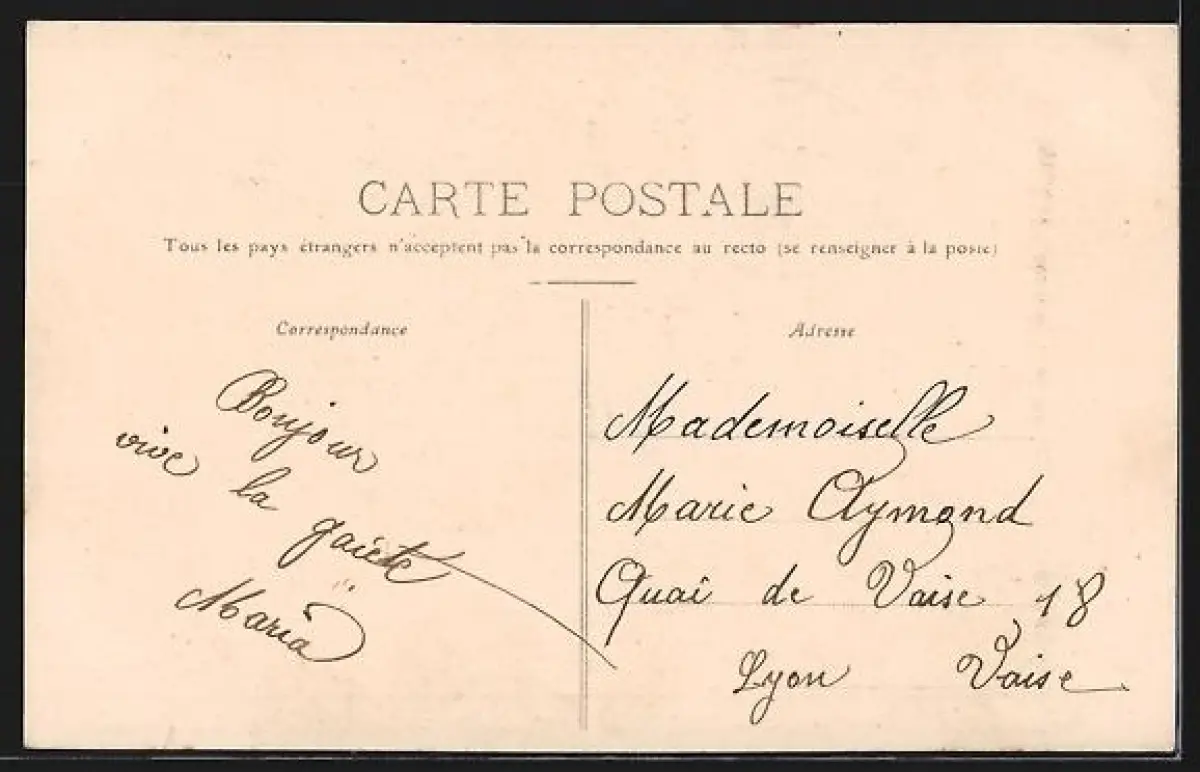 CARTE POSTALE
Tous les pays étrangers n'acceptent pas la correspondance au recto (se renseigner à la poste)
Correspondance
Bonjour
vive la gaiete
Maria
Adresse
Mademoiselle
Marie Aymond
Quai de Vaise 18
Lyon Vaise